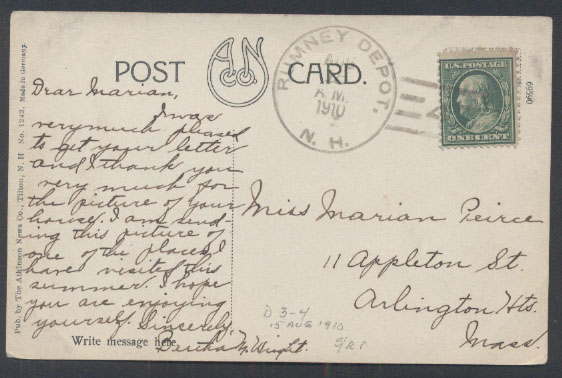 POST CARD.
A.N.Co.
Pub. by The Atkinson News Co., Tilton, N. H. No. 1242. Made in Germany.
Dear Marian,
I was
very much pleased
to get your letter
and I thank you
very much for
the picture of your
house. I am send-
ing this picture of
one of the places I
have visited this
summer. I hope
you are enjoying
yourself. Sincerely,
Bertha M. Wright.
Write message here.
RUMNEY DEPOT,
AUG
A.M.
1910
N. H.
U.S. POSTAGE
ONE CENT
06569
Miss Marian Peirce
11 Appleton St.
Arlington Hts.
Mass.
D 3-4
15 AUG 1910
S/R 1